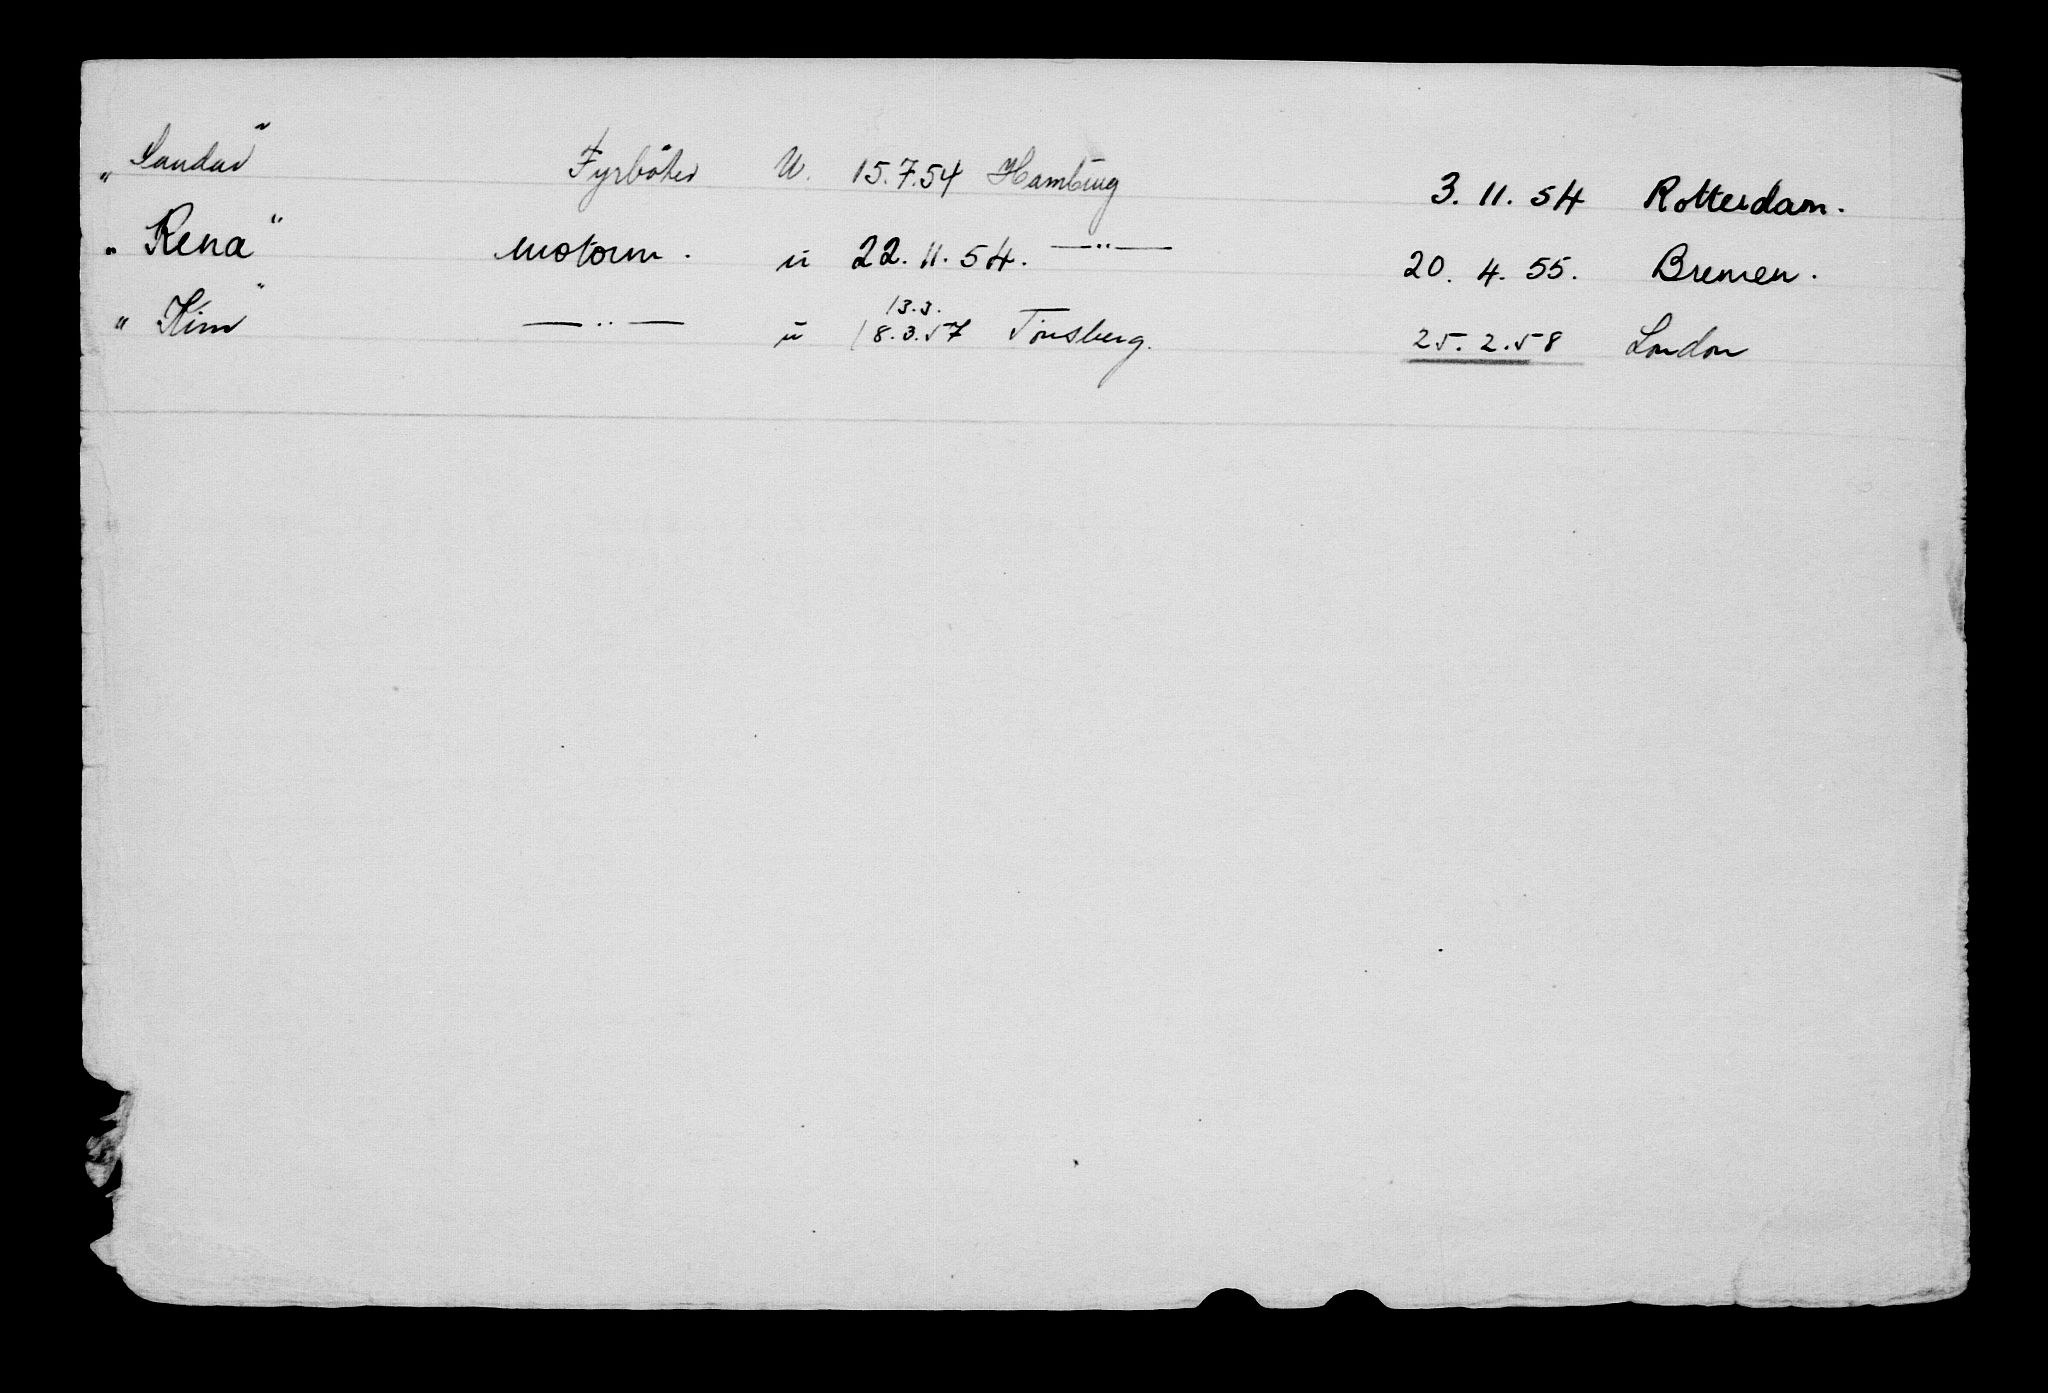 „Sandar" Fyrbøter U. 15.7.54 Hamburg 3. 11. 54 Rotterdam.
„Rena" motorm. u 22. 11. 54. —"— 20. 4. 55. Bremen.
13.3.
„Kim" —"— u 18.3.57 Tönsberg. 25.2.58 London